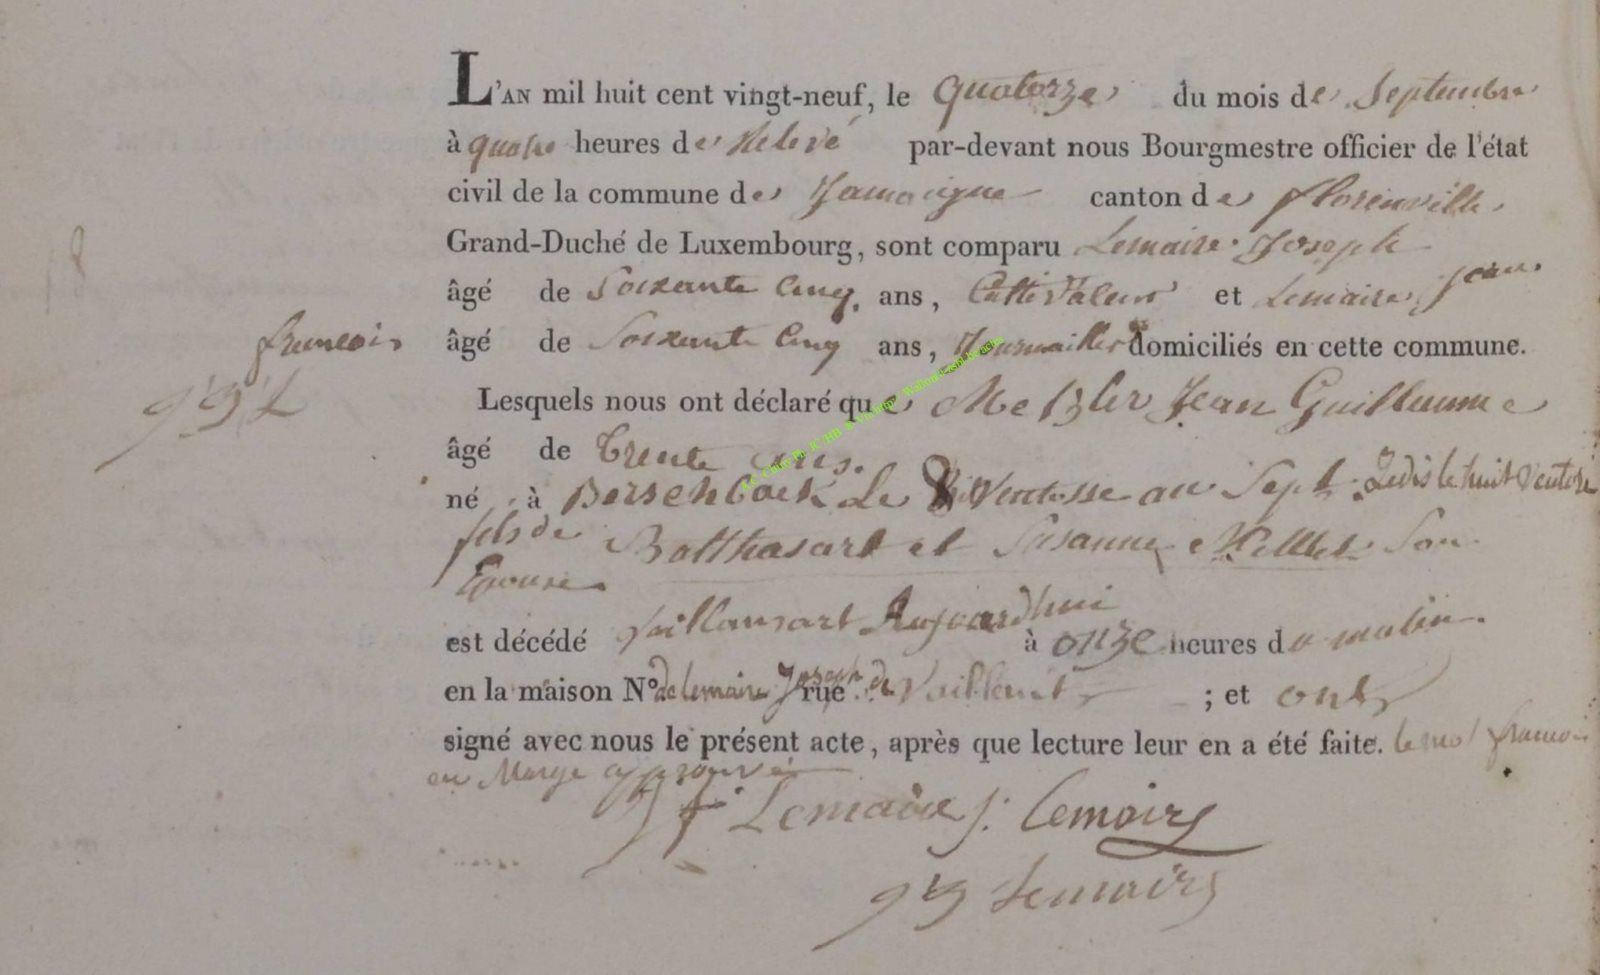 L'AN mil huit cent vingt-neuf, le quatorze du mois de Septembre
à quatre heures de Relevé par-devant nous Bourgmestre officier de l'état
civil de la commune de Jamoigne canton de florenville
Grand-Duché de Luxembourg, sont comparu Lemaire Joseph
âgé de Soixante Cinq ans, Cultivateur et Lemaire Jean
francois âgé de Soixante Cinq ans, Journaillier domiciliés en cette commune.
Lesquels nous ont déclaré que Metzler Jean Guillaume
âgé de Trente ans.
né à Berschback Le Ventosse an Sept. Je dis le huit Ventose
fils de Balthasart et Susanne Son
Epouse
est décédé Aujourdhui à onze heures du matin.
en la maison N° de Lemaire Joseph rue de ; et ont
signé avec nous le présent acte, après que lecture leur en a été faite. le mot francois
en Marge approuvé
Lemaire J. Lemaire
Lemaire